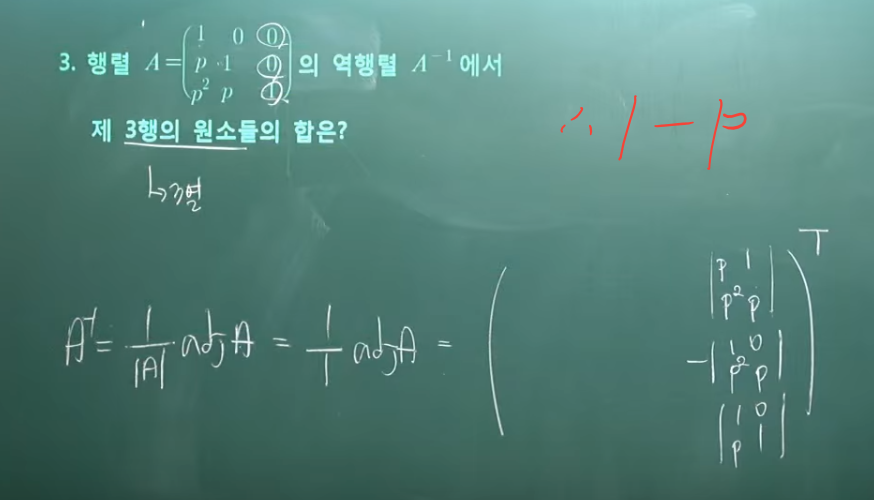 3. 행렬 A = \begin{pmatrix} 1 & 0 & 0 \\ p & 1 & 0 \\ p^2 & p & 1 \end{pmatrix} 의 역행렬 A^{-1} 에서
제 3행의 원소들의 합은?
∴ 1 - p
↳ 3열
A^{-1} = \frac{1}{|A|} adj A = \frac{1}{1} adj A = \begin{pmatrix} & & \begin{vmatrix} p & 1 \\ p^2 & p \end{vmatrix} \\ & & -\begin{vmatrix} 1 & 0 \\ p^2 & p \end{vmatrix} \\ & & \begin{vmatrix} 1 & 0 \\ p & 1 \end{vmatrix} \end{pmatrix}^T